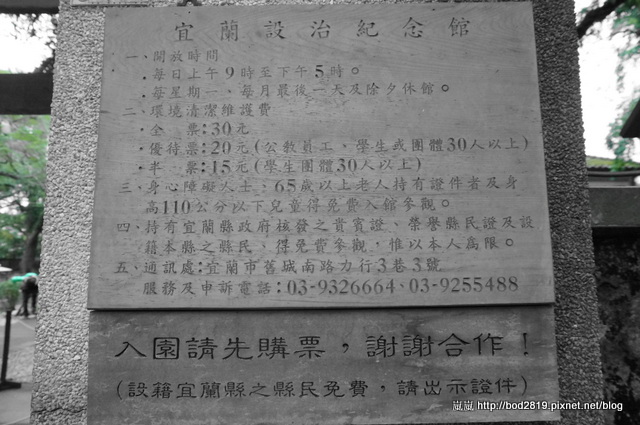 宜蘭設治紀念館
一、開放時間
．每日上午9時至下午5時。
．每星期一、每月最後一天及除夕休館。
二、環境清潔維護費
．全　票：30元
．優待票：20元(公教員工、學生或團體30人以上)
．半　票：15元(學生團體30人以上)
三、身心障礙人士、65歲以上老人持有證件者及身
高110公分以下兒童得免費入館參觀。
四、持有宜蘭縣政府核發之貴賓證、榮譽縣民證及設
籍本縣之縣民，得免費參觀，惟以本人為限。
五、通訊處：宜蘭市舊城南路力行3巷3號
服務及申訴電話：03-9326664、03-9255488
入園請先購票，謝謝合作！
(設籍宜蘭縣之縣民免費，請出示證件)
嵐嵐 http://bod2819.pixnet.net/blog